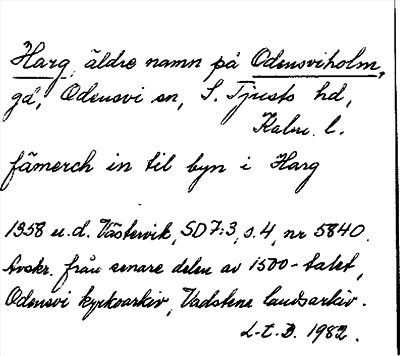 Harg, äldre namn på Odensviholm,
gd, Odensvi sn, S. Tjusts hd,
Kalm. l.
fämerch in til byn i Harg
1358 u.d. Västervik, SD 7:3, s. 4, nr 5840.
Avskr. från senare delen av 1500-talet,
Odensvi kyrkoarkiv, Vadstena landsarkiv.
L-t. B. 1982.